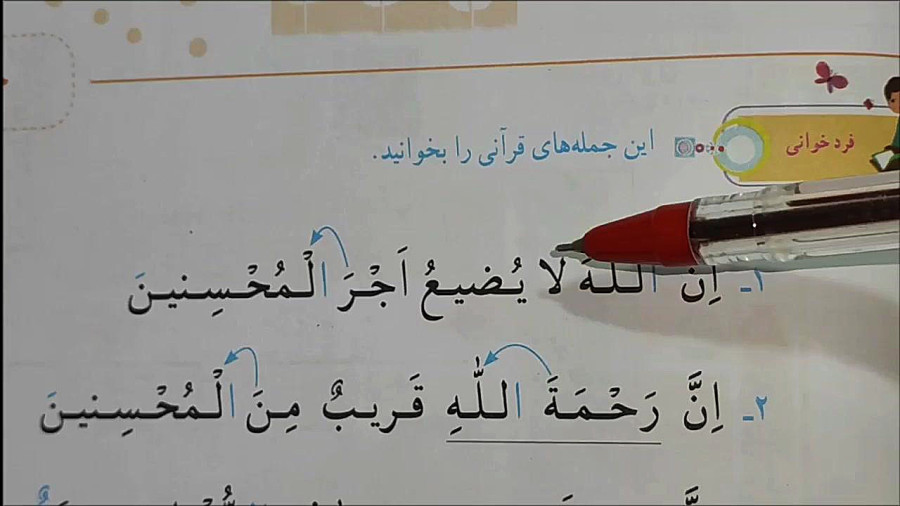 فردخوانی
این جمله‌های قرآنی را بخوانید.
۱ـ اِنَّ اللّٰهَ لا یُضیعُ اَجْرَ الْمُحْسِنینَ
۲ـ اِنَّ رَحْمَةَ اللّٰهِ قَریبٌ مِنَ الْمُحْسِنینَ